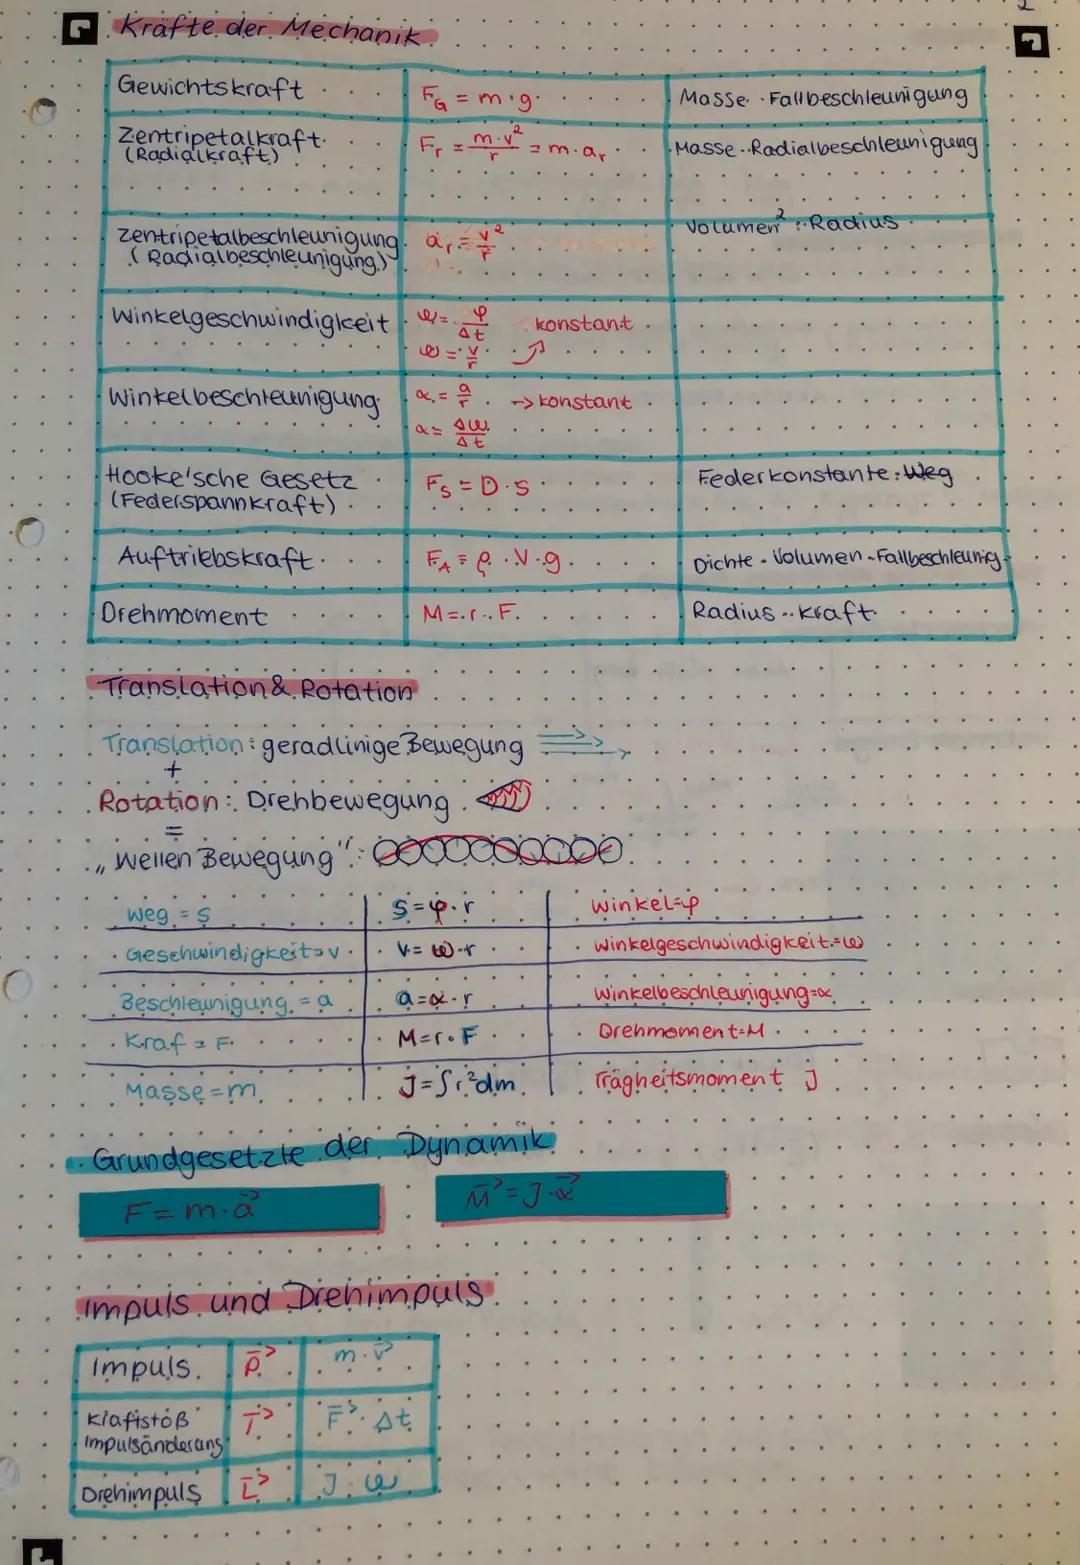 2
Kräfte der Mechanik
Gewichtskraft F_G = m · g Masse · Fallbeschleunigung
Zentripetalkraft F_r = m·v²/r = m · a_r Masse · Radialbeschleunigung
(Radialkraft)
Volumen² : Radius
Zentripetalbeschleunigung a_r = v²/r
(Radialbeschleunigung)
Winkelgeschwindigkeit ω = φ/Δt konstant
ω = v/r ↗
Winkelbeschleunigung α = a/r → konstant
α = Δω/Δt
Hooke'sche Gesetz F_S = D · s Federkonstante · Weg
(Federspannkraft)
Auftriebskraft F_A = ρ · V · g Dichte · Volumen · Fallbeschleunig.
Drehmoment M = r · F Radius · Kraft
Translation & Rotation
Translation: geradlinige Bewegung
+
Rotation: Drehbewegung
=
„Wellen Bewegung":
Weg = s s = φ · r Winkel = φ
Geschwindigkeit = v v = ω · r Winkelgeschwindigkeit = ω
Beschleunigung = a a = α · r Winkelbeschleunigung = α
Kraf = F M = r · F Drehmoment = M
Masse = m J = ∫r²dm Trägheitsmoment J
Grundgesetzte der Dynamik
F = m · a⃗ M⃗ = J · α⃗
Impuls und Drehimpuls
Impuls p⃗ m · v⃗
Kraftstoß I⃗ F⃗ · Δt
Impulsänderung
Drehimpuls L⃗ J · ω